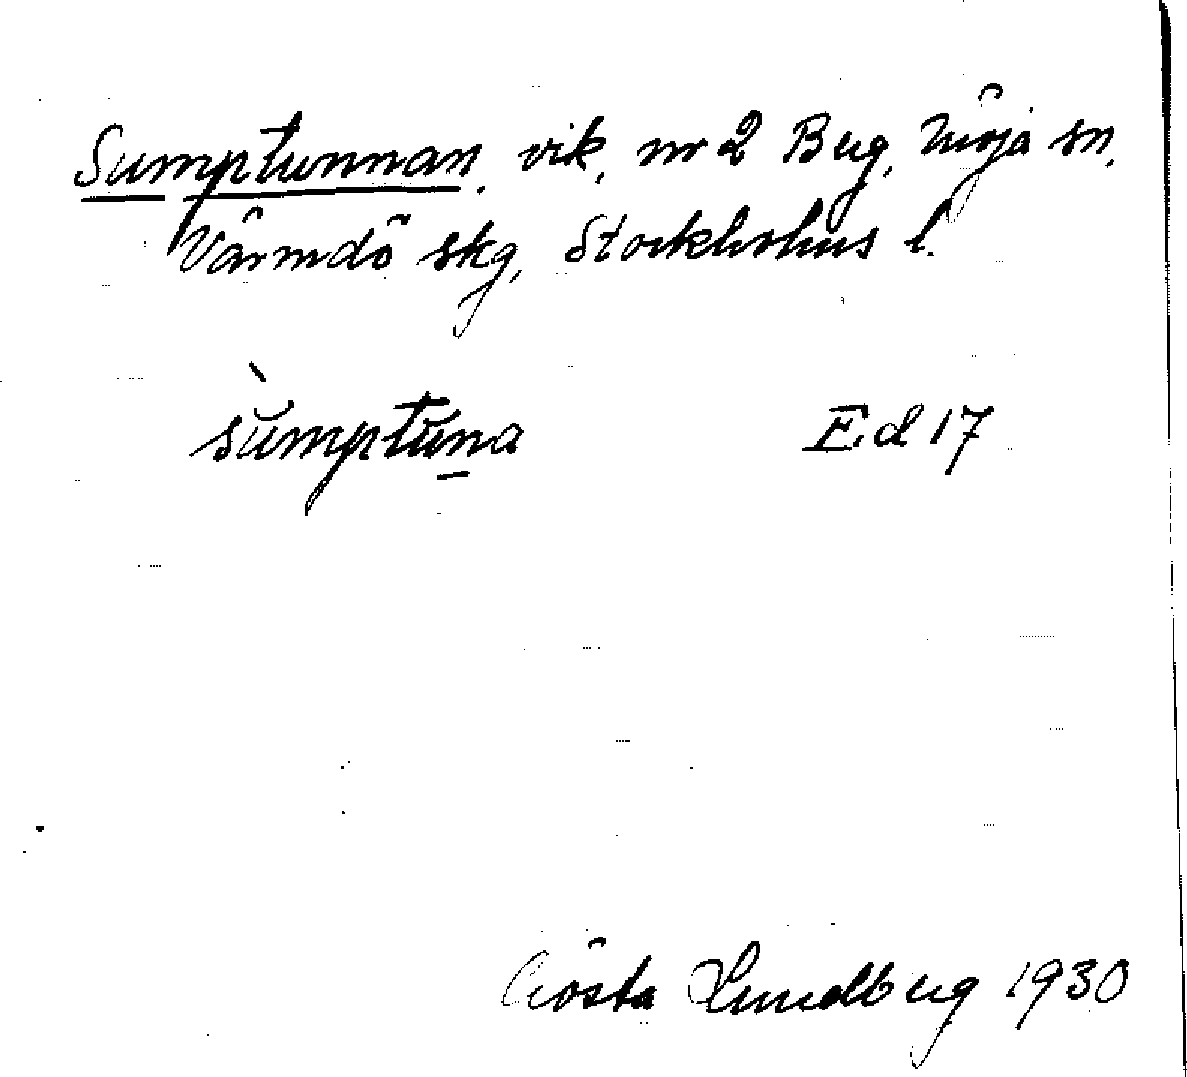 Sumptunnan, vik, nr 2 Berg, Möja sn,
Värmdö skg, Stockholms l.
sùmptuna E.d 17
Gösta Lundberg 1930